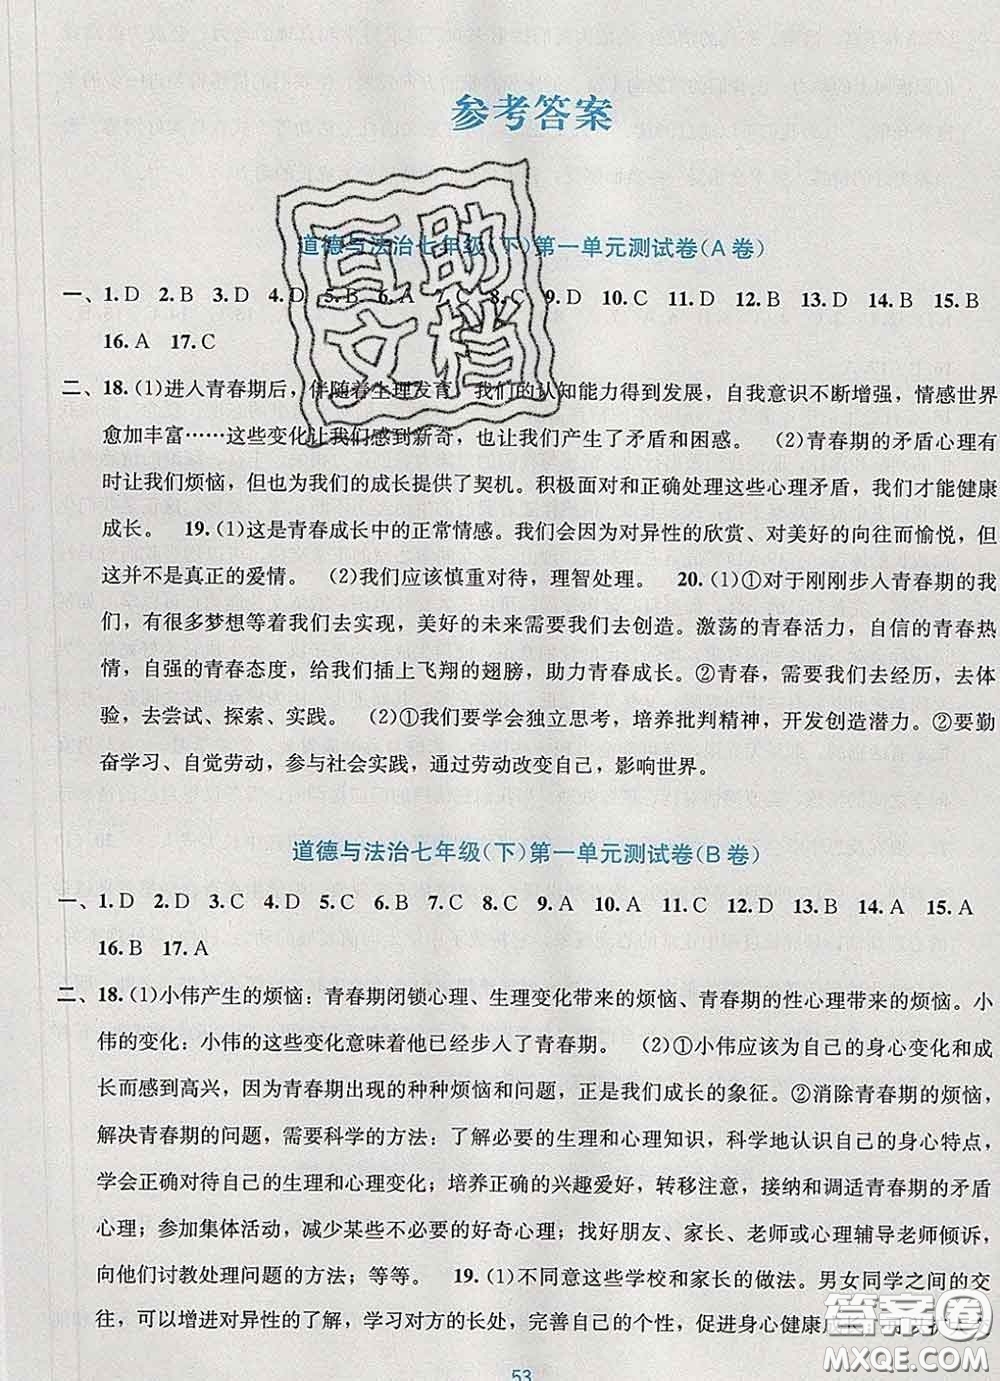 参考答案
互助
文档
道德与法治七年级(下)第一单元测试卷(A卷)
一、1. D 2. B 3. D 4. D 5. B 6. A 7. C 8. C 9. D 10. C 11. D 12. B 13. D 14. B 15. B
16. A 17. C
二、18. (1)进入青春期后，伴随着生理发育，我们的认知能力得到发展，自我意识不断增强，情感世界
愈加丰富……这些变化让我们感到新奇，也让我们产生了矛盾和困惑。 (2)青春期的矛盾心理有
时让我们烦恼，但也为我们的成长提供了契机。积极面对和正确处理这些心理矛盾，我们才能健康
成长。 19. (1)这是青春成长中的正常情感。我们会因为对异性的欣赏、对美好的向往而愉悦，但
这并不是真正的爱情。 (2)我们应该慎重对待，理智处理。 20. (1)①对于刚刚步入青春期的我
们，有很多梦想等着我们去实现，美好的未来需要我们去创造。激荡的青春活力，自信的青春热
情，自强的青春态度，给我们插上飞翔的翅膀，助力青春成长。②青春，需要我们去经历，去体
验，去尝试、探索、实践。 (2)①我们要学会独立思考，培养批判精神，开发创造潜力。②要勤
奋学习、自觉劳动，参与社会实践，通过劳动改变自己，影响世界。
道德与法治七年级(下)第一单元测试卷(B卷)
一、1. D 2. D 3. C 4. D 5. C 6. B 7. C 8. C 9. A 10. A 11. C 12. D 13. B 14. A 15. A
16. B 17. A
二、18. (1)小伟产生的烦恼：青春期闭锁心理、生理变化带来的烦恼、青春期的性心理带来的烦恼。小
伟的变化：小伟的这些变化意味着他已经步入了青春期。 (2)①小伟应该为自己的身心变化和成
长而感到高兴，因为青春期出现的种种烦恼和问题，正是我们成长的象征。②消除青春期的烦恼，
解决青春期的问题，需要科学的方法：了解必要的生理和心理知识，科学地认识自己的身心特点，
学会正确对待自己的生理和心理变化；培养正确的兴趣爱好，转移注意，接纳和调适青春期的矛盾
心理；参加集体活动，减少某些不必要的好奇心理；找好朋友、家长、老师或心理辅导老师倾诉，
向他们讨教处理问题的方法；等等。 19. (1)不同意这些学校和家长的做法。男女同学之间的交
往，可以增进对异性的了解，学习对方的长处，完善自己的个性，促进身心健康
答案圈
MXQE.COM
53